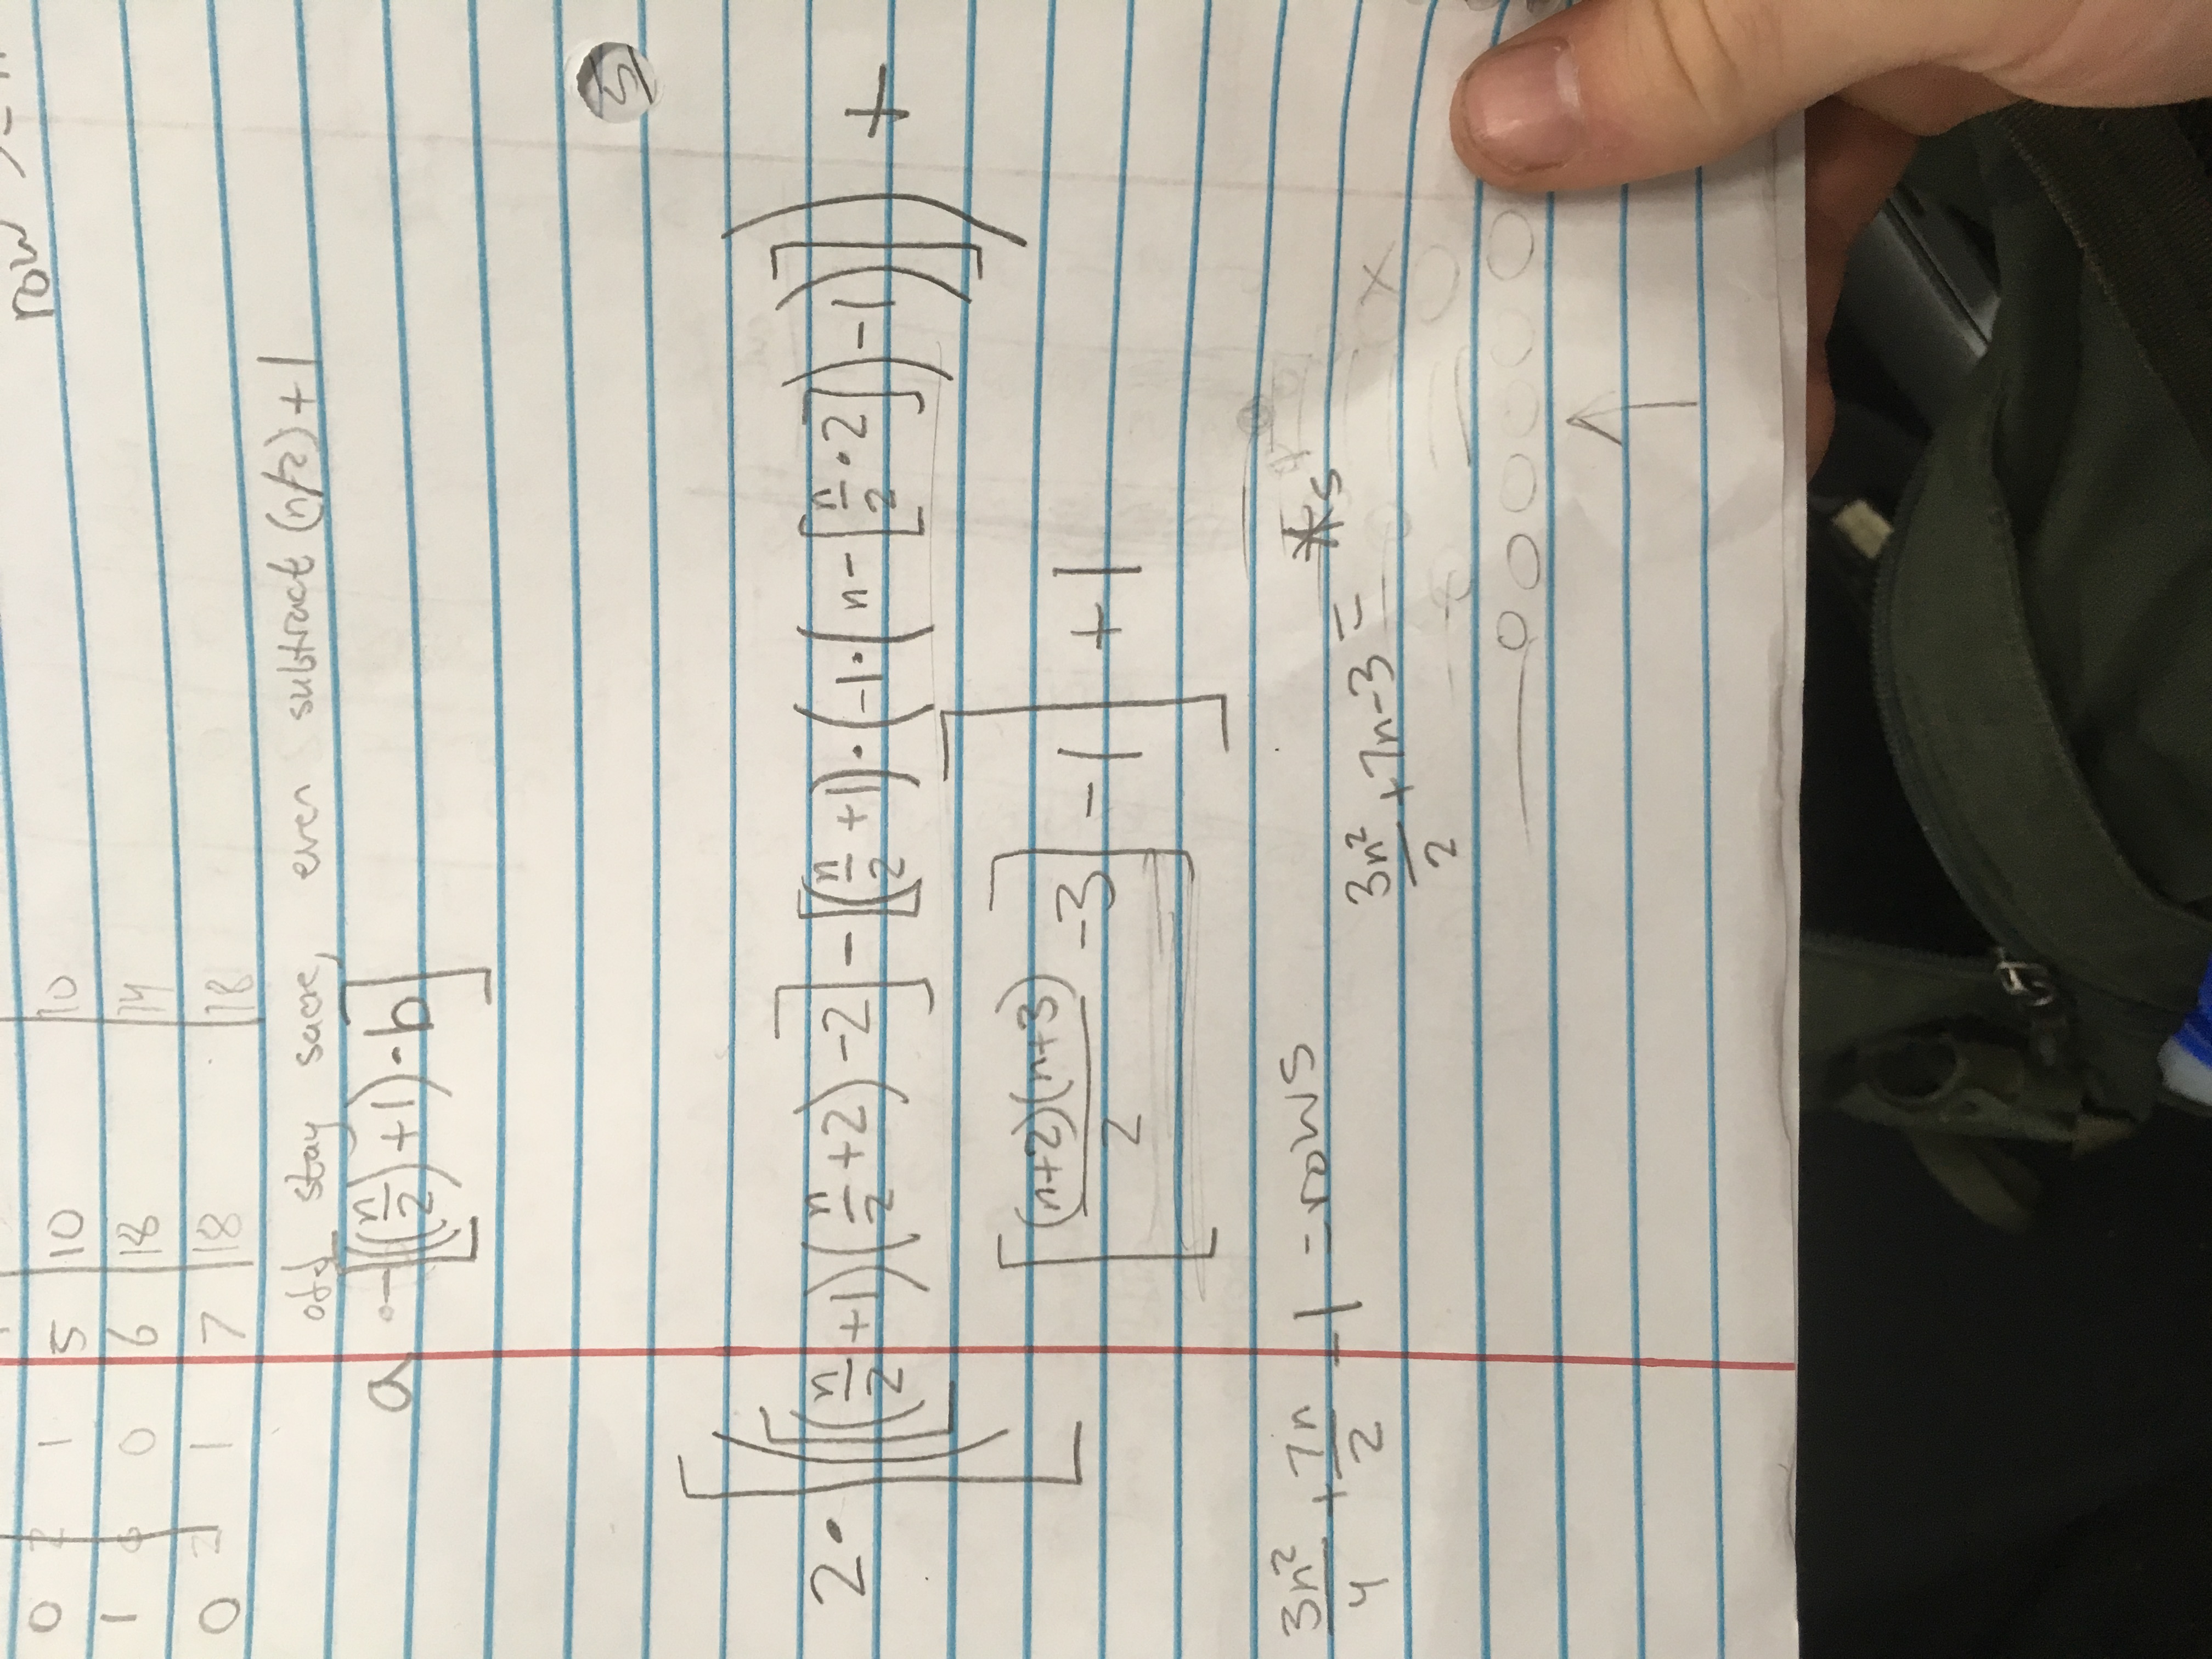 row
0 2 1 5 10 10
1 0 0 6 18 14
0 2 1 7 18 18
odd stay same, even subtract (n/2)+1
a - [((n/2)+1)·b]
2·[([(n/2+1)(n/2+2)-2] - [(n/2+1)·(-1·(n-[n/2·2])-1)]) +
[(n+2)(n+3)/2 -3] -1] +1
3n²/4 + 7n/2 - 1 = rows
3n²/2 + 7n - 3 = *s